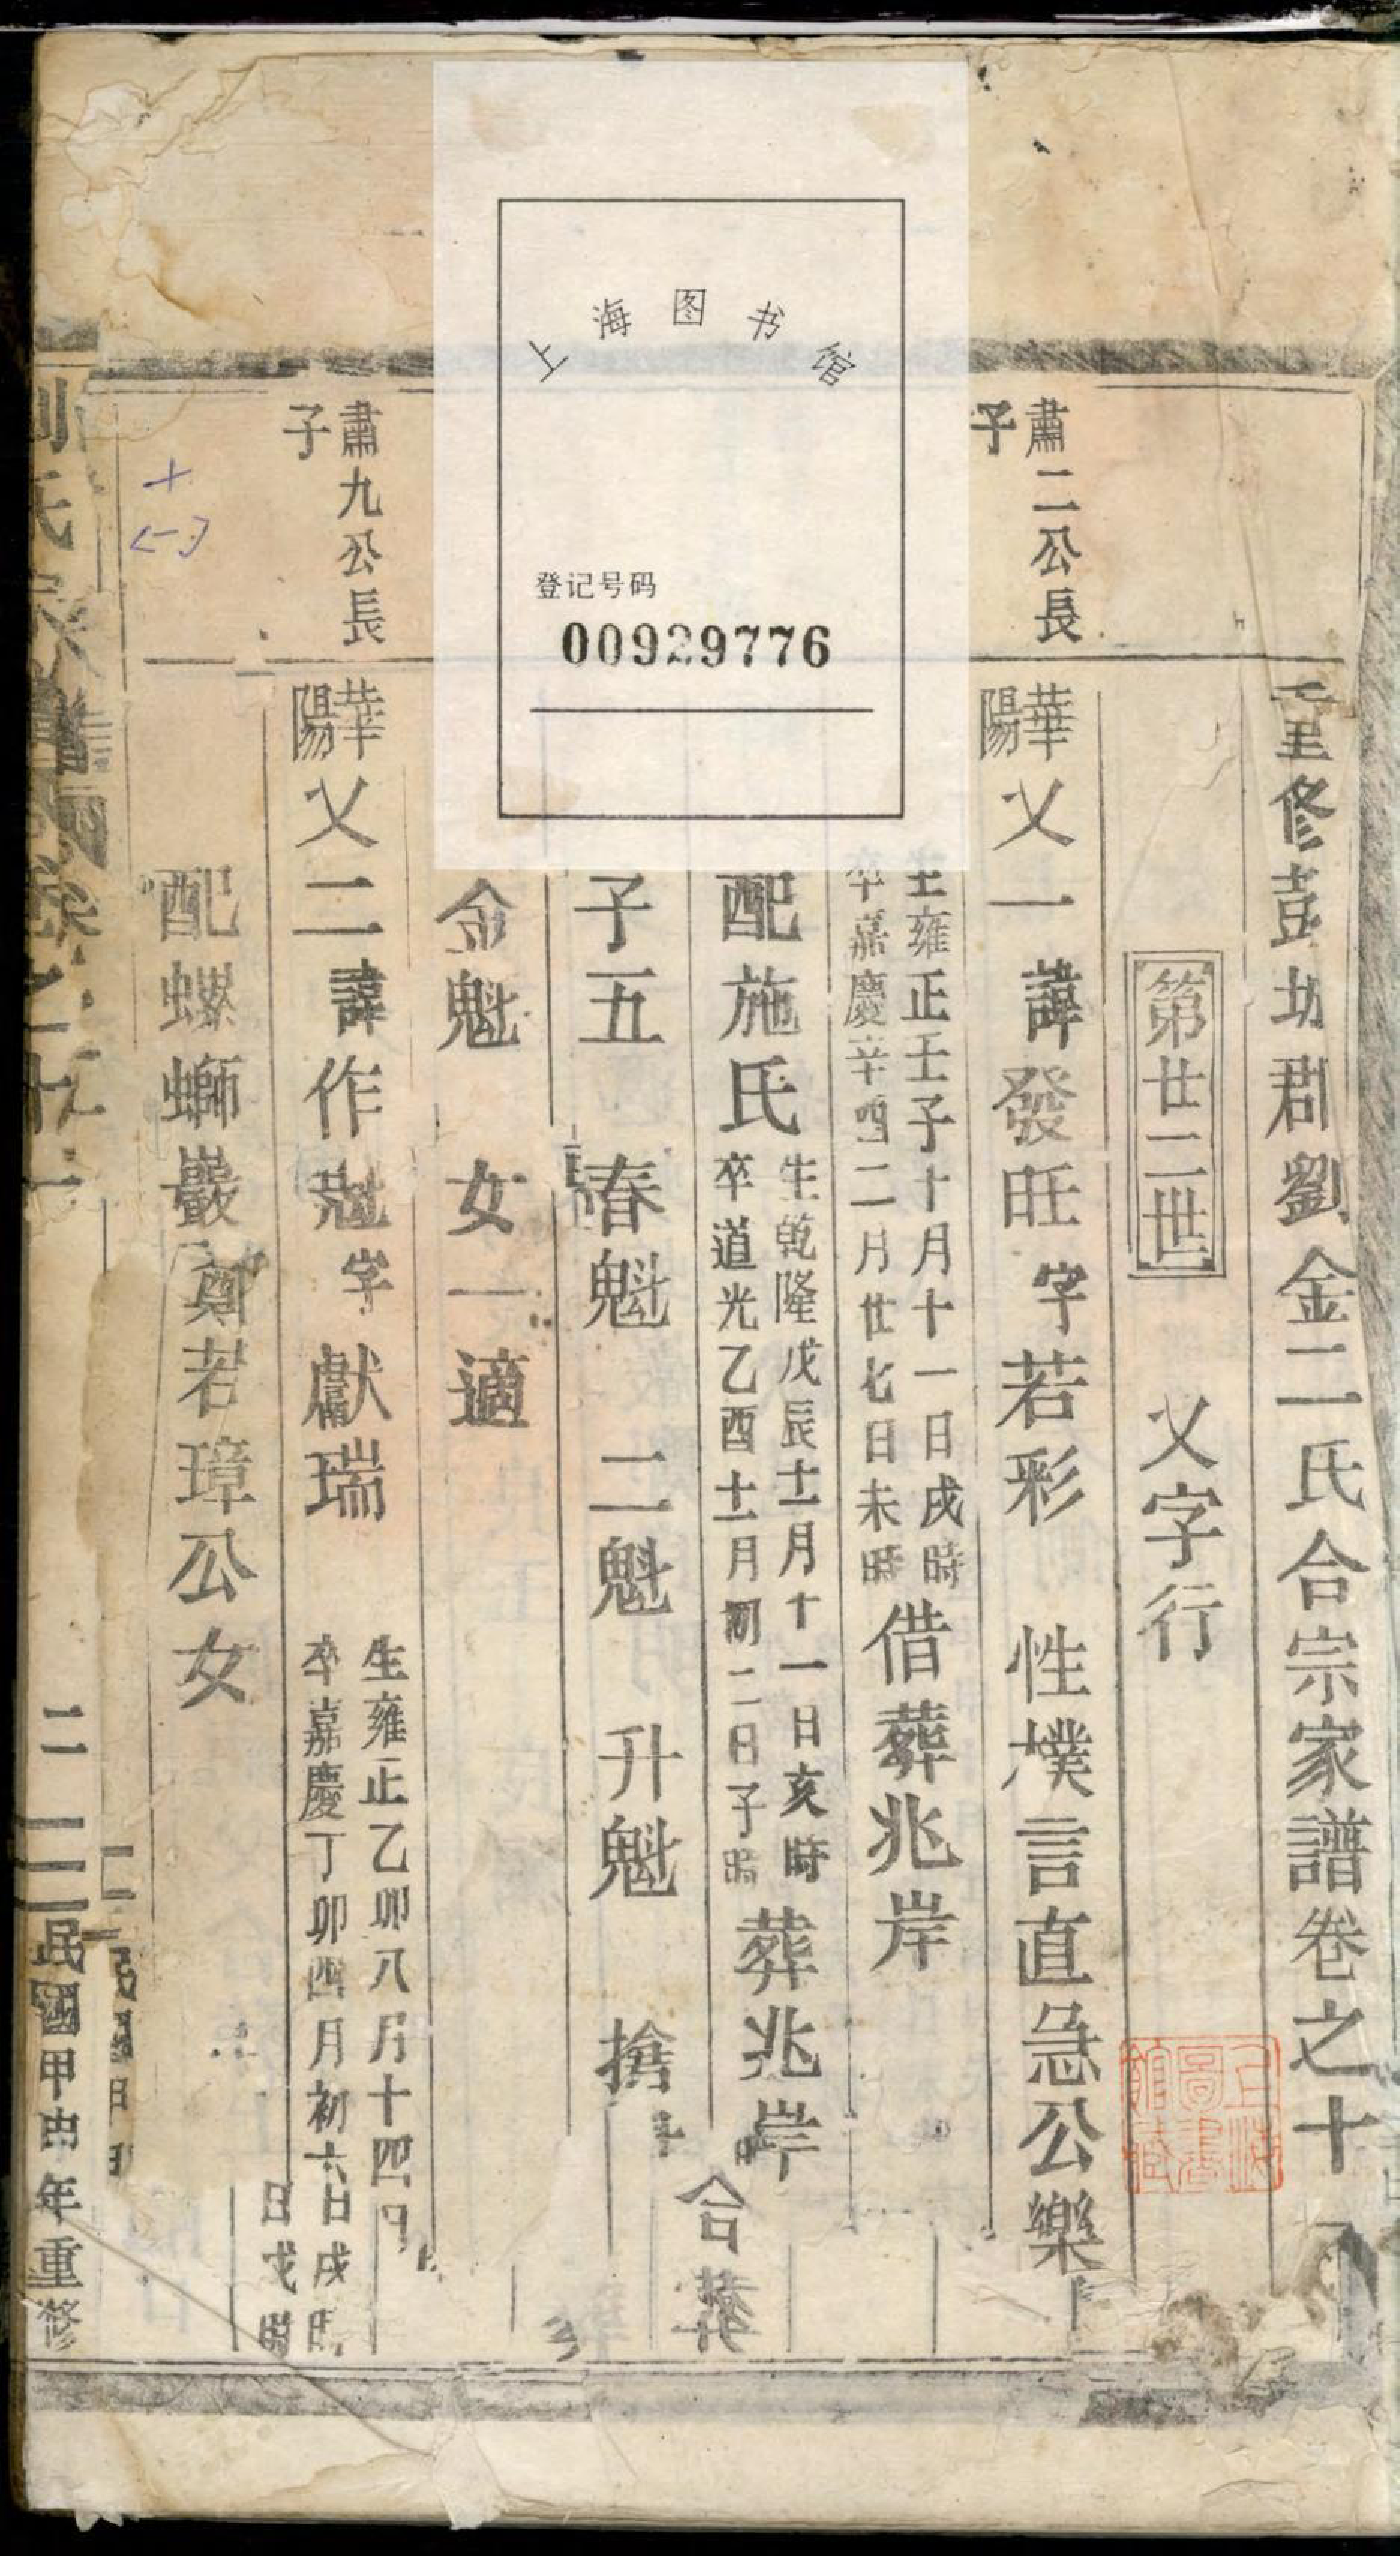 重修彭城郡劉金二氏合宗家譜卷之十
第廿二世
乂字行
肅二公長
子
華陽
乂一諱發旺字若彩 性樸言直急公樂
生雍正壬子十月十一日戌時
卒嘉慶辛酉二月廿七日未時
借葬兆岸
配施氏
生乾隆戊辰十二月十一日亥時
卒道光乙酉十二月初二日子時
葬兆岸
合葬
子五 春魁 二魁 升魁
金魁 女一適
肅九公長
子
華陽
乂二諱作魁字獻瑞
生雍正乙卯八月十四日
卒嘉慶丁卯四月初六日戌時
配螺螄巖鄭若璋公女
劉氏家譜卷之十
二
民國甲申年重修
上海图书馆
登记号码
00929776
上海圖書館藏